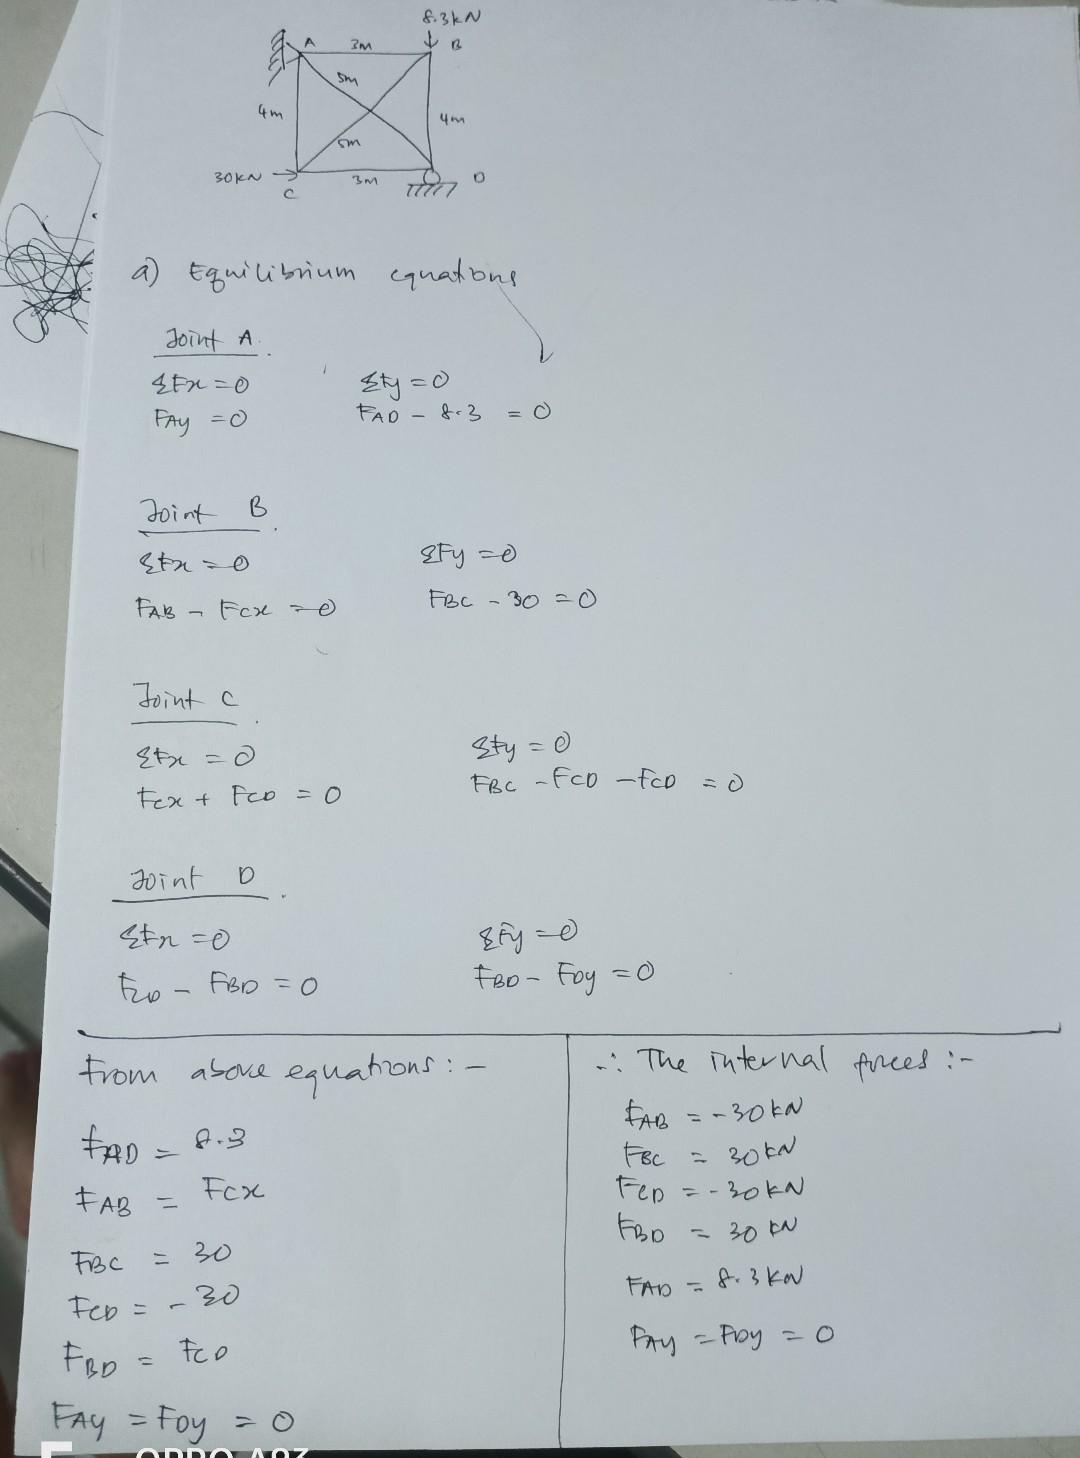 8.3kN
A 3m B
5m
4m 4m
5m
30KN 3m D
C
a) Equilibrium equations
Joint A.
ΣFx = 0 ΣFy = 0
FAy = 0 FAD - 8.3 = 0
Joint B.
ΣFx = 0 ΣFy = 0
FAB - FCx = 0 FBC - 30 = 0
Joint C.
ΣFx = 0 ΣFy = 0
FCx + FCD = 0 FBC - FCD - FCD = 0
Joint D.
ΣFx = 0 ΣFy = 0
FCD - FBD = 0 FBD - FDy = 0
From above equations :-
FAD = 8.3
FAB = FCx
FBC = 30
FCD = - 30
FBD = FCD
FAy = FDy = 0
∴ The internal forces :-
FAB = -30 kN
FBC = 30 kN
FCD = -30 kN
FBD = 30 kN
FAD = 8.3 kN
FAy = FDy = 0